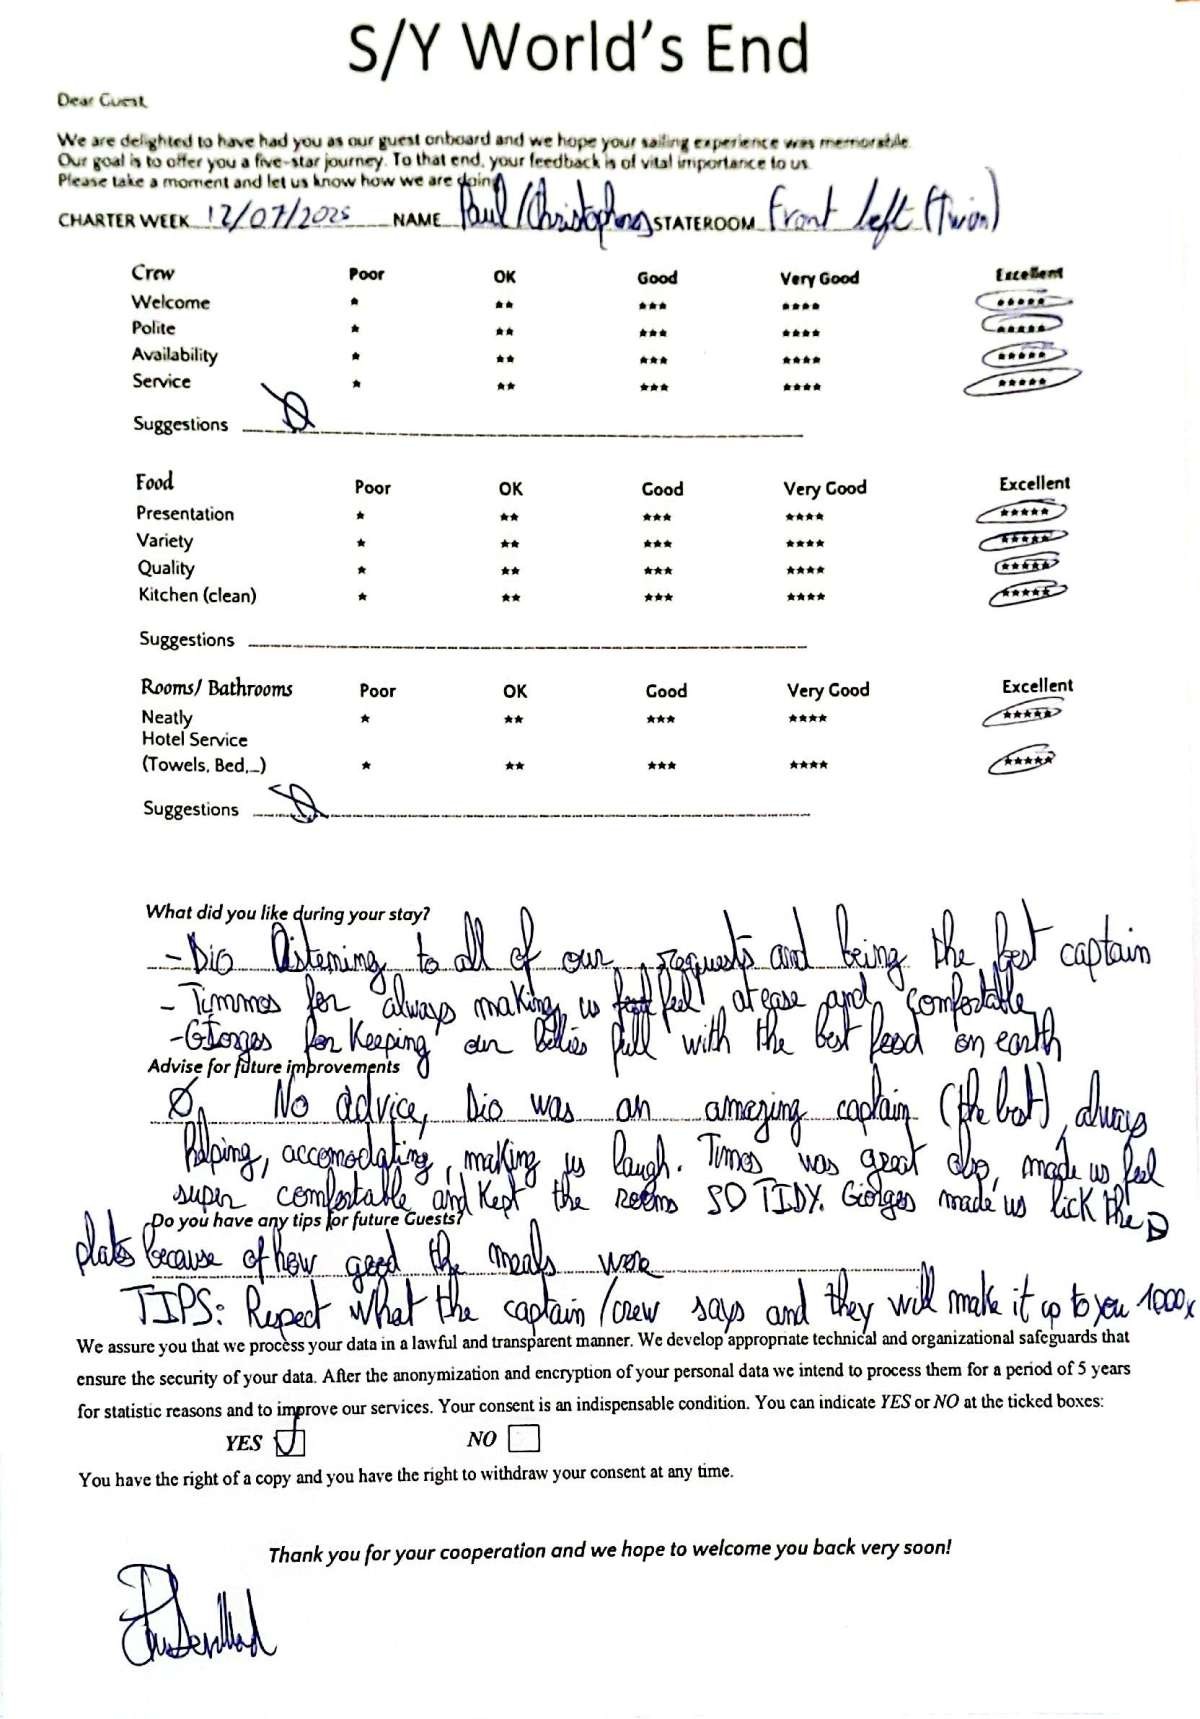 S/Y World's End
Dear Guest,
We are delighted to have had you as our guest onboard and we hope your sailing experience was memorable.
Our goal is to offer you a five-star journey. To that end, your feedback is of vital importance to us.
Please take a moment and let us know how we are doing
CHARTER WEEK 12/07/2025 NAME Paul/Christophoros STATEROOM Front left (Twin)
Crew Poor OK Good Very Good Excellent
Welcome * ** *** **** *****
Polite * ** *** **** *****
Availability * ** *** **** *****
Service * ** *** **** *****
Suggestions Ø
Food Poor OK Good Very Good Excellent
Presentation * ** *** **** *****
Variety * ** *** **** *****
Quality * ** *** **** *****
Kitchen (clean) * ** *** **** *****
Suggestions
Rooms/ Bathrooms Poor OK Good Very Good Excellent
Neatly * ** *** **** *****
Hotel Service
(Towels, Bed,...) * ** *** **** *****
Suggestions Ø
What did you like during your stay?
- Dio listening to all of our requests and being the best captain
- Timmos for always making us feel at ease and comfortable
- Giorges for keeping our bellies full with the best food on earth
Advise for future improvements
Ø, No advice, Dio was an amazing captain (the best), always
helping, accomodating, making us laugh. Timos was great also, made us feel
super comfortable and kept the rooms SO TIDY. Giorges made us lick the
Do you have any tips for future Guests?
plates because of how good the meals were
TIPS: Respect what the captain/crew says and they will make it up to you 1000x
We assure you that we process your data in a lawful and transparent manner. We develop appropriate technical and organizational safeguards that
ensure the security of your data. After the anonymization and encryption of your personal data we intend to process them for a period of 5 years
for statistic reasons and to improve our services. Your consent is an indispensable condition. You can indicate YES or NO at the ticked boxes:
YES NO
You have the right of a copy and you have the right to withdraw your consent at any time.
Thank you for your cooperation and we hope to welcome you back very soon!